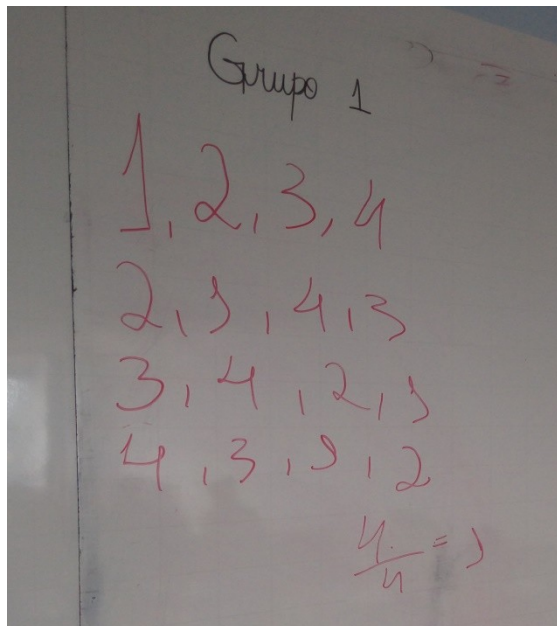 Grupo 1
1, 2, 3, 4
2, 1, 4, 3
3, 4, 2, 1
4, 3, 1, 2
4/4 = 1